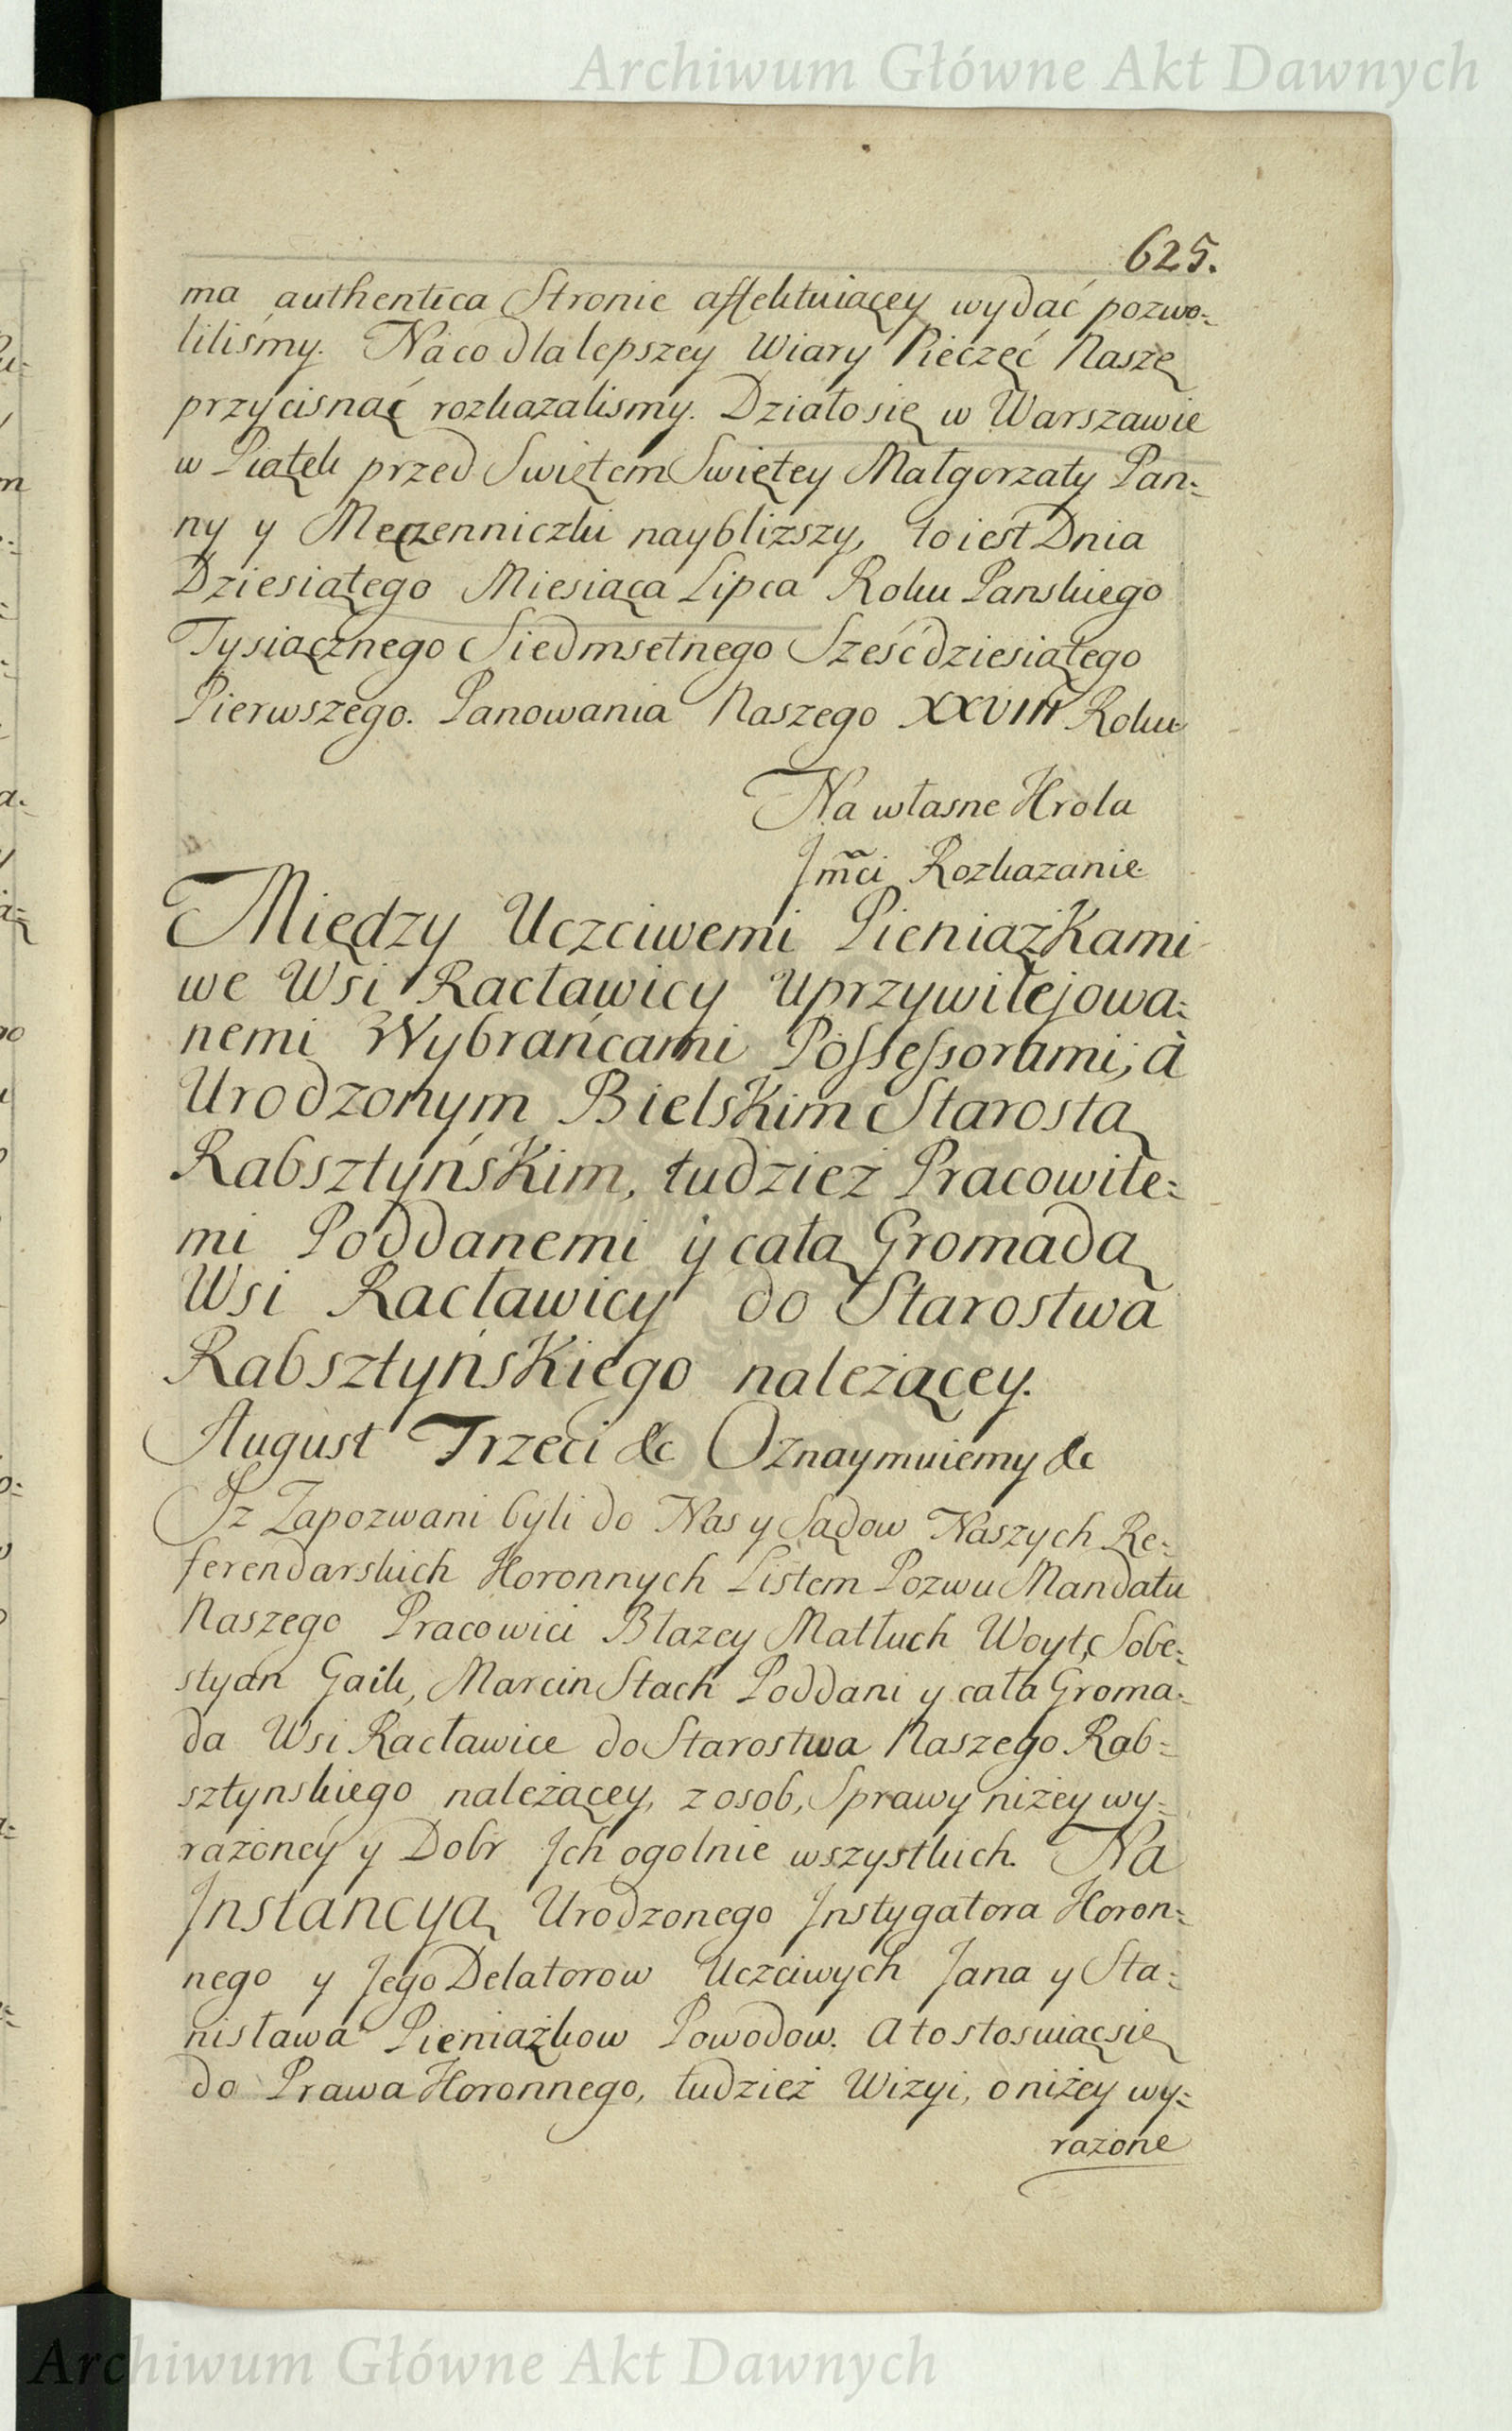 Archiwum Główne Akt Dawnych
625.
ma authentica Stronie affektuiącey wydać pozwo=
liliśmy. Na co dla lepszey Wiary Pieczęć Naszę
przycisnąć rozkazalismy. Działo się w Warszawie
w Piątek przed Swiętem Swiętey Małgorzaty Pan=
ny y Męczenniczki naybliższy, to iest Dnia
Dziesiątego Miesiąca Lipca Roku Panskiego
Tysiącznego Siedmsetnego Sześćdziesiątego
Pierwszego. Panowania Naszego XXVIII Roku
Na własne Krola
Jmci Rozkazanie
Między Uczciwemi Pieniążkami
we Wsi Racławicy Uprzywilejowa=
nemi Wybrańcami Possessorami, à
Urodzonym Bielskim Starostą
Rabsztyńskim, tudzież Pracowite=
mi Poddanemi ÿ całą Gromadą
Wsi Racławicy do Starostwa
Rabsztyńskiego należącey.
August Trzeci &c Oznaymuiemy &c
Iz Zapozwani byli do Nas y Sądow Naszych Re=
ferendarskich Koronnych Listem Pozwu Mandatu
Naszego Pracowici Błazey Matłuch Woyt, Sobe=
styan Gaik, Marcin Stach Poddani y cała Groma=
da Wsi Racławice do Starostwa Naszego Rab=
sztynskiego należącey, z osob, Sprawy niżey wy=
rażoney y Dobr Ich ogolnie wszystkich. Na
Instancyą Urodzonego Instygatora Koron=
nego y Jego Delatorow Uczciwych Jana y Sta=
nisława Pieniążkow Powodow. A to stosuiąc się
do Prawa Koronnego, tudzież Wizyi, o niżey wy=
rażone
Archiwum Główne Akt Dawnych